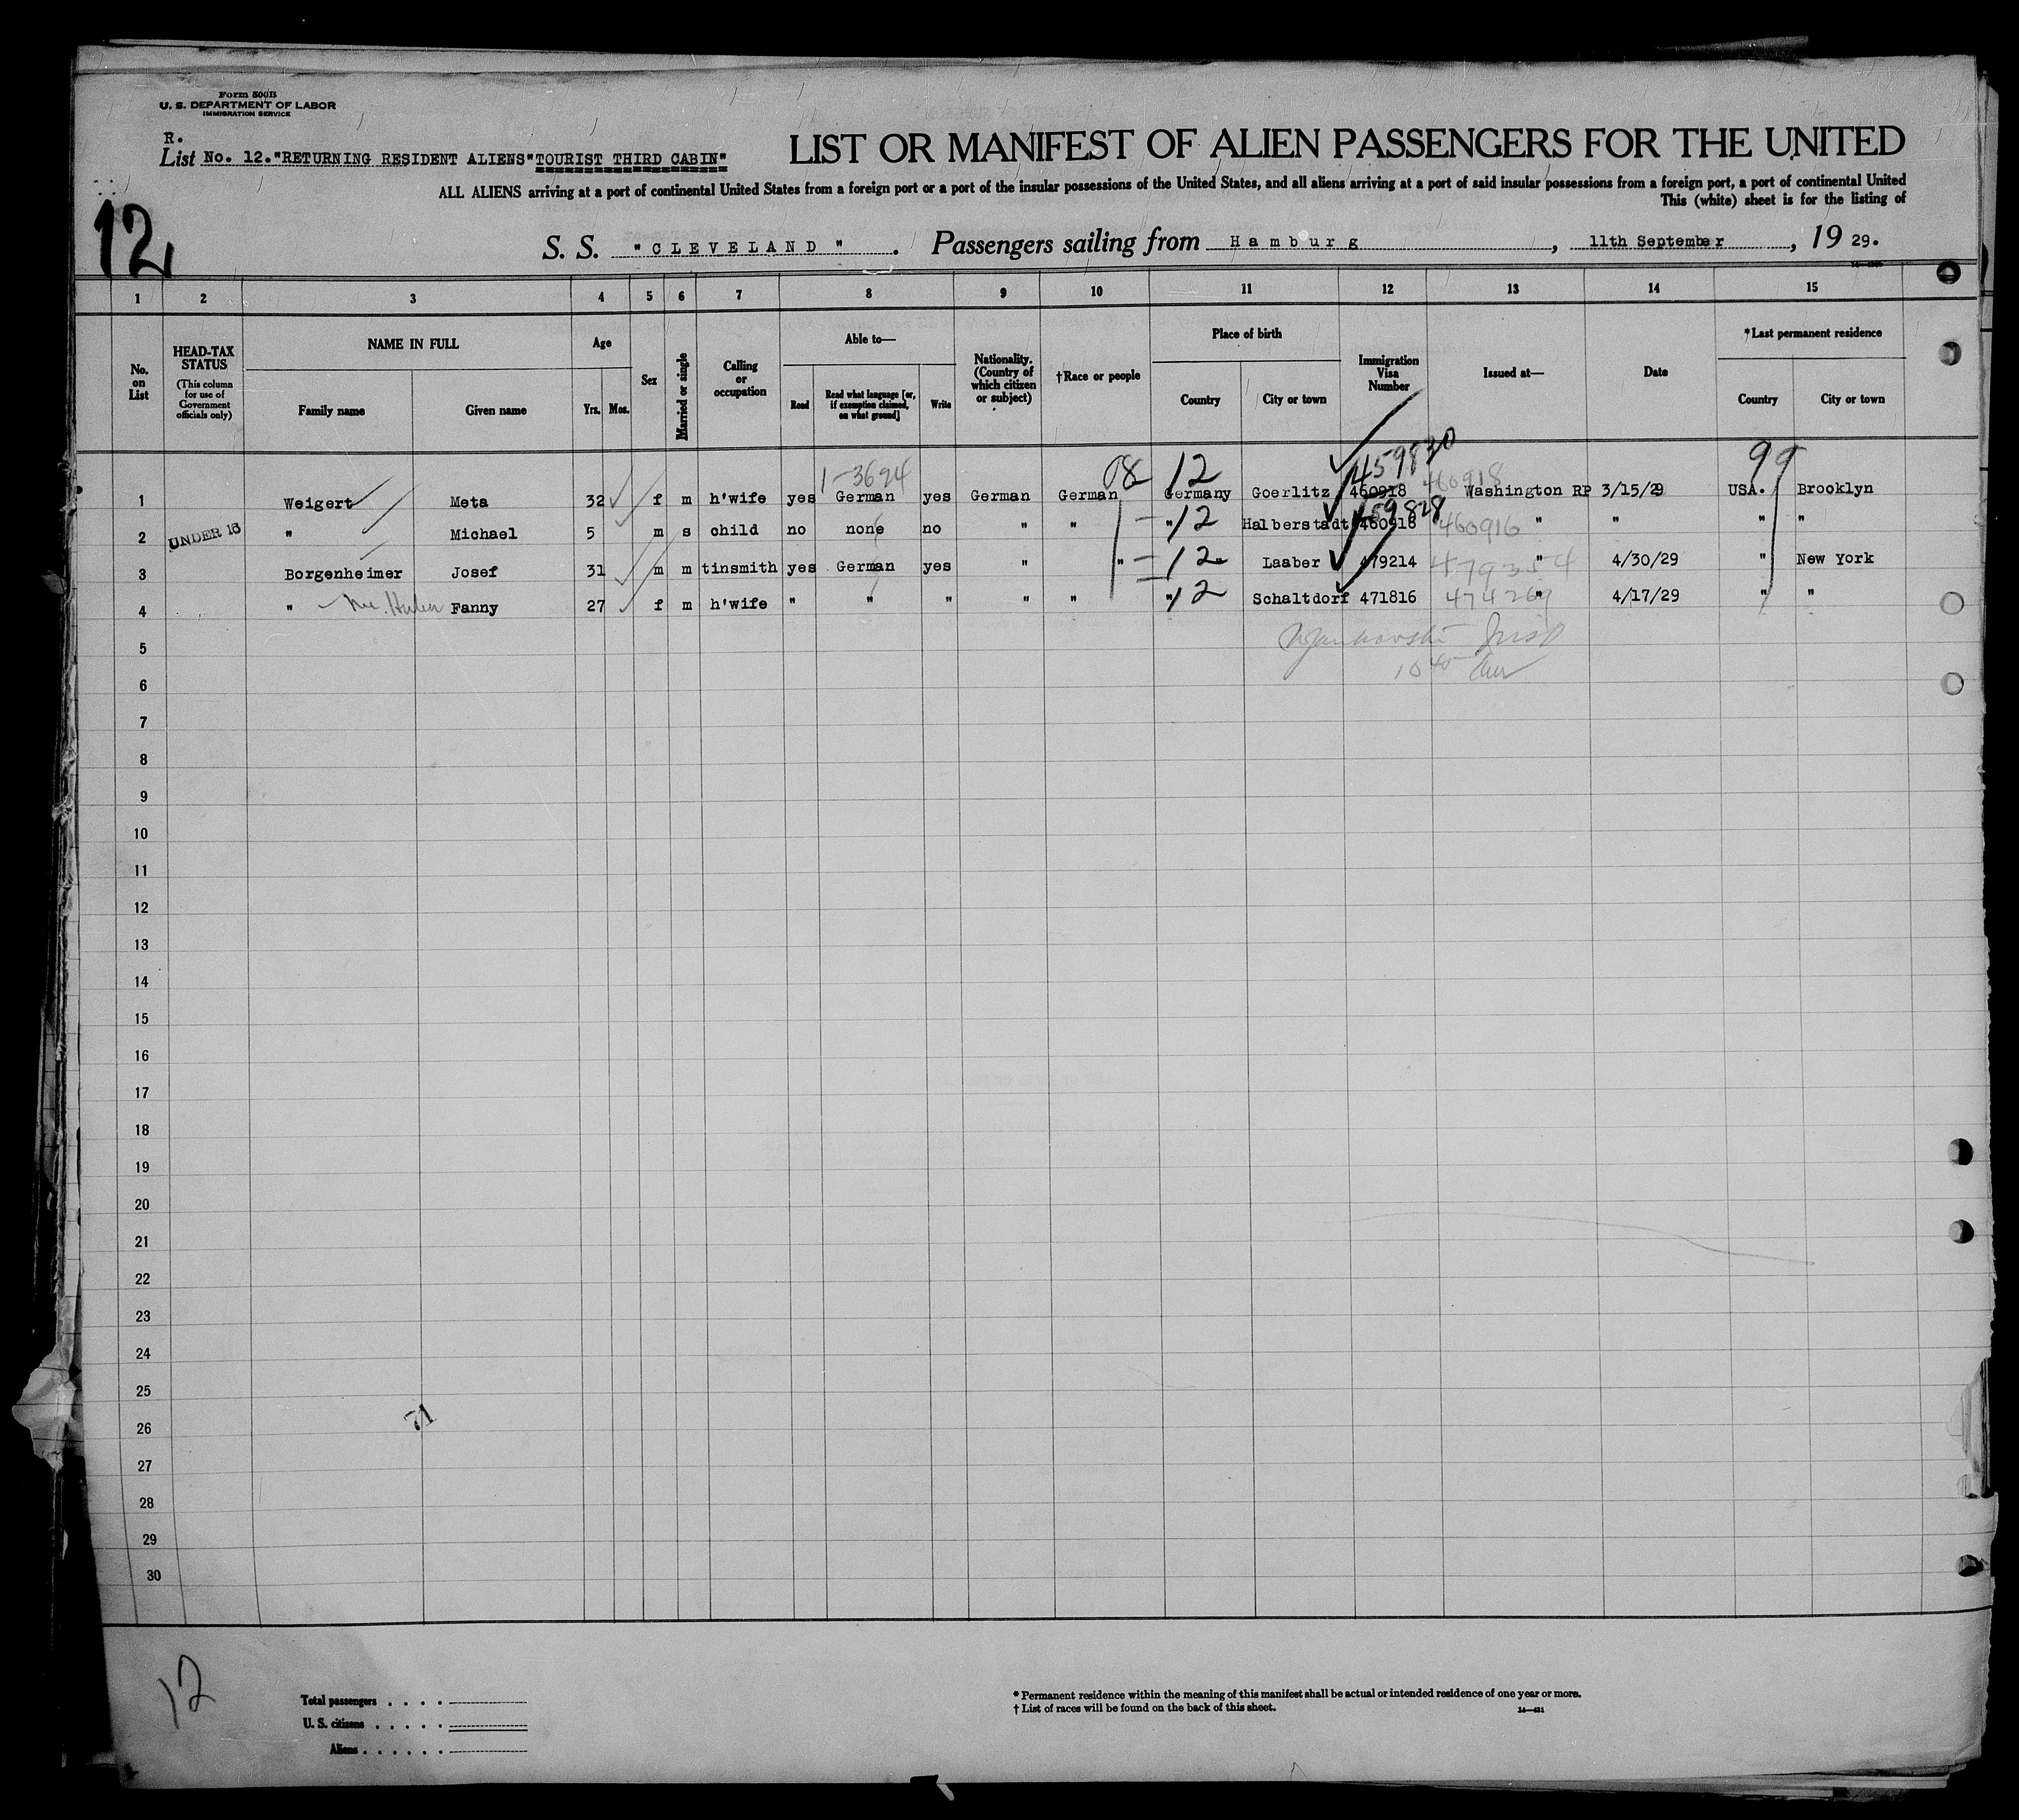 Form 500B
U. S. DEPARTMENT OF LABOR
IMMIGRATION SERVICE
R.
List No. 12. "RETURNING RESIDENT ALIENS" TOURIST THIRD CABIN"
LIST OR MANIFEST OF ALIEN PASSENGERS FOR THE UNITED
ALL ALIENS arriving at a port of continental United States from a foreign port or a port of the insular possessions of the United States, and all aliens arriving at a port of said insular possessions from a foreign port, a port of continental United
This (white) sheet is for the listing of
12
S. S. "CLEVELAND". Passengers sailing from Hamburg, 11th September, 1929.
1 2 3 4 5 6 7 8 9 10 11 12 13 14 15
No. on List
HEAD-TAX STATUS (This column for use of Government officials only)
NAME IN FULL
Family name
Given name
Age
Yrs. Mos.
Sex
Married or single
Calling or occupation
Able to—
Read
Read what language [or, if exemption claimed, on what ground]
Write
Nationality. (Country of which citizen or subject)
†Race or people
Place of birth
Country
City or town
Immigration Visa Number
Issued at—
Date
*Last permanent residence
Country
City or town
1-3694 08 12 459830 460918 99
1 Weigert Meta 32 f m h'wife yes German yes German German Germany Goerlitz 460918 Washington RP 3/15/29 USA. Brooklyn
459828
2 UNDER 16 " Michael 5 m s child no none no " " " 12 Halberstadt 460916 460916 " " " "
3 Borgenheimer Josef 31 m m tinsmith yes German yes " " " 12 Laaber 479214 479354 " 4/30/29 " New York
4 " Fanny 27 f m h'wife " " " " " " 12 Schaltdorf 471816 474269 " 4/17/29 " "
5
6
7
8
9
10
11
12
13
14
15
16
17
18
19
20
21
22
23
24
25
26
71
27
28
29
30
12
Total passengers
U. S. citizens
Aliens
* Permanent residence within the meaning of this manifest shall be actual or intended residence of one year or more.
† List of races will be found on the back of this sheet.
14—431